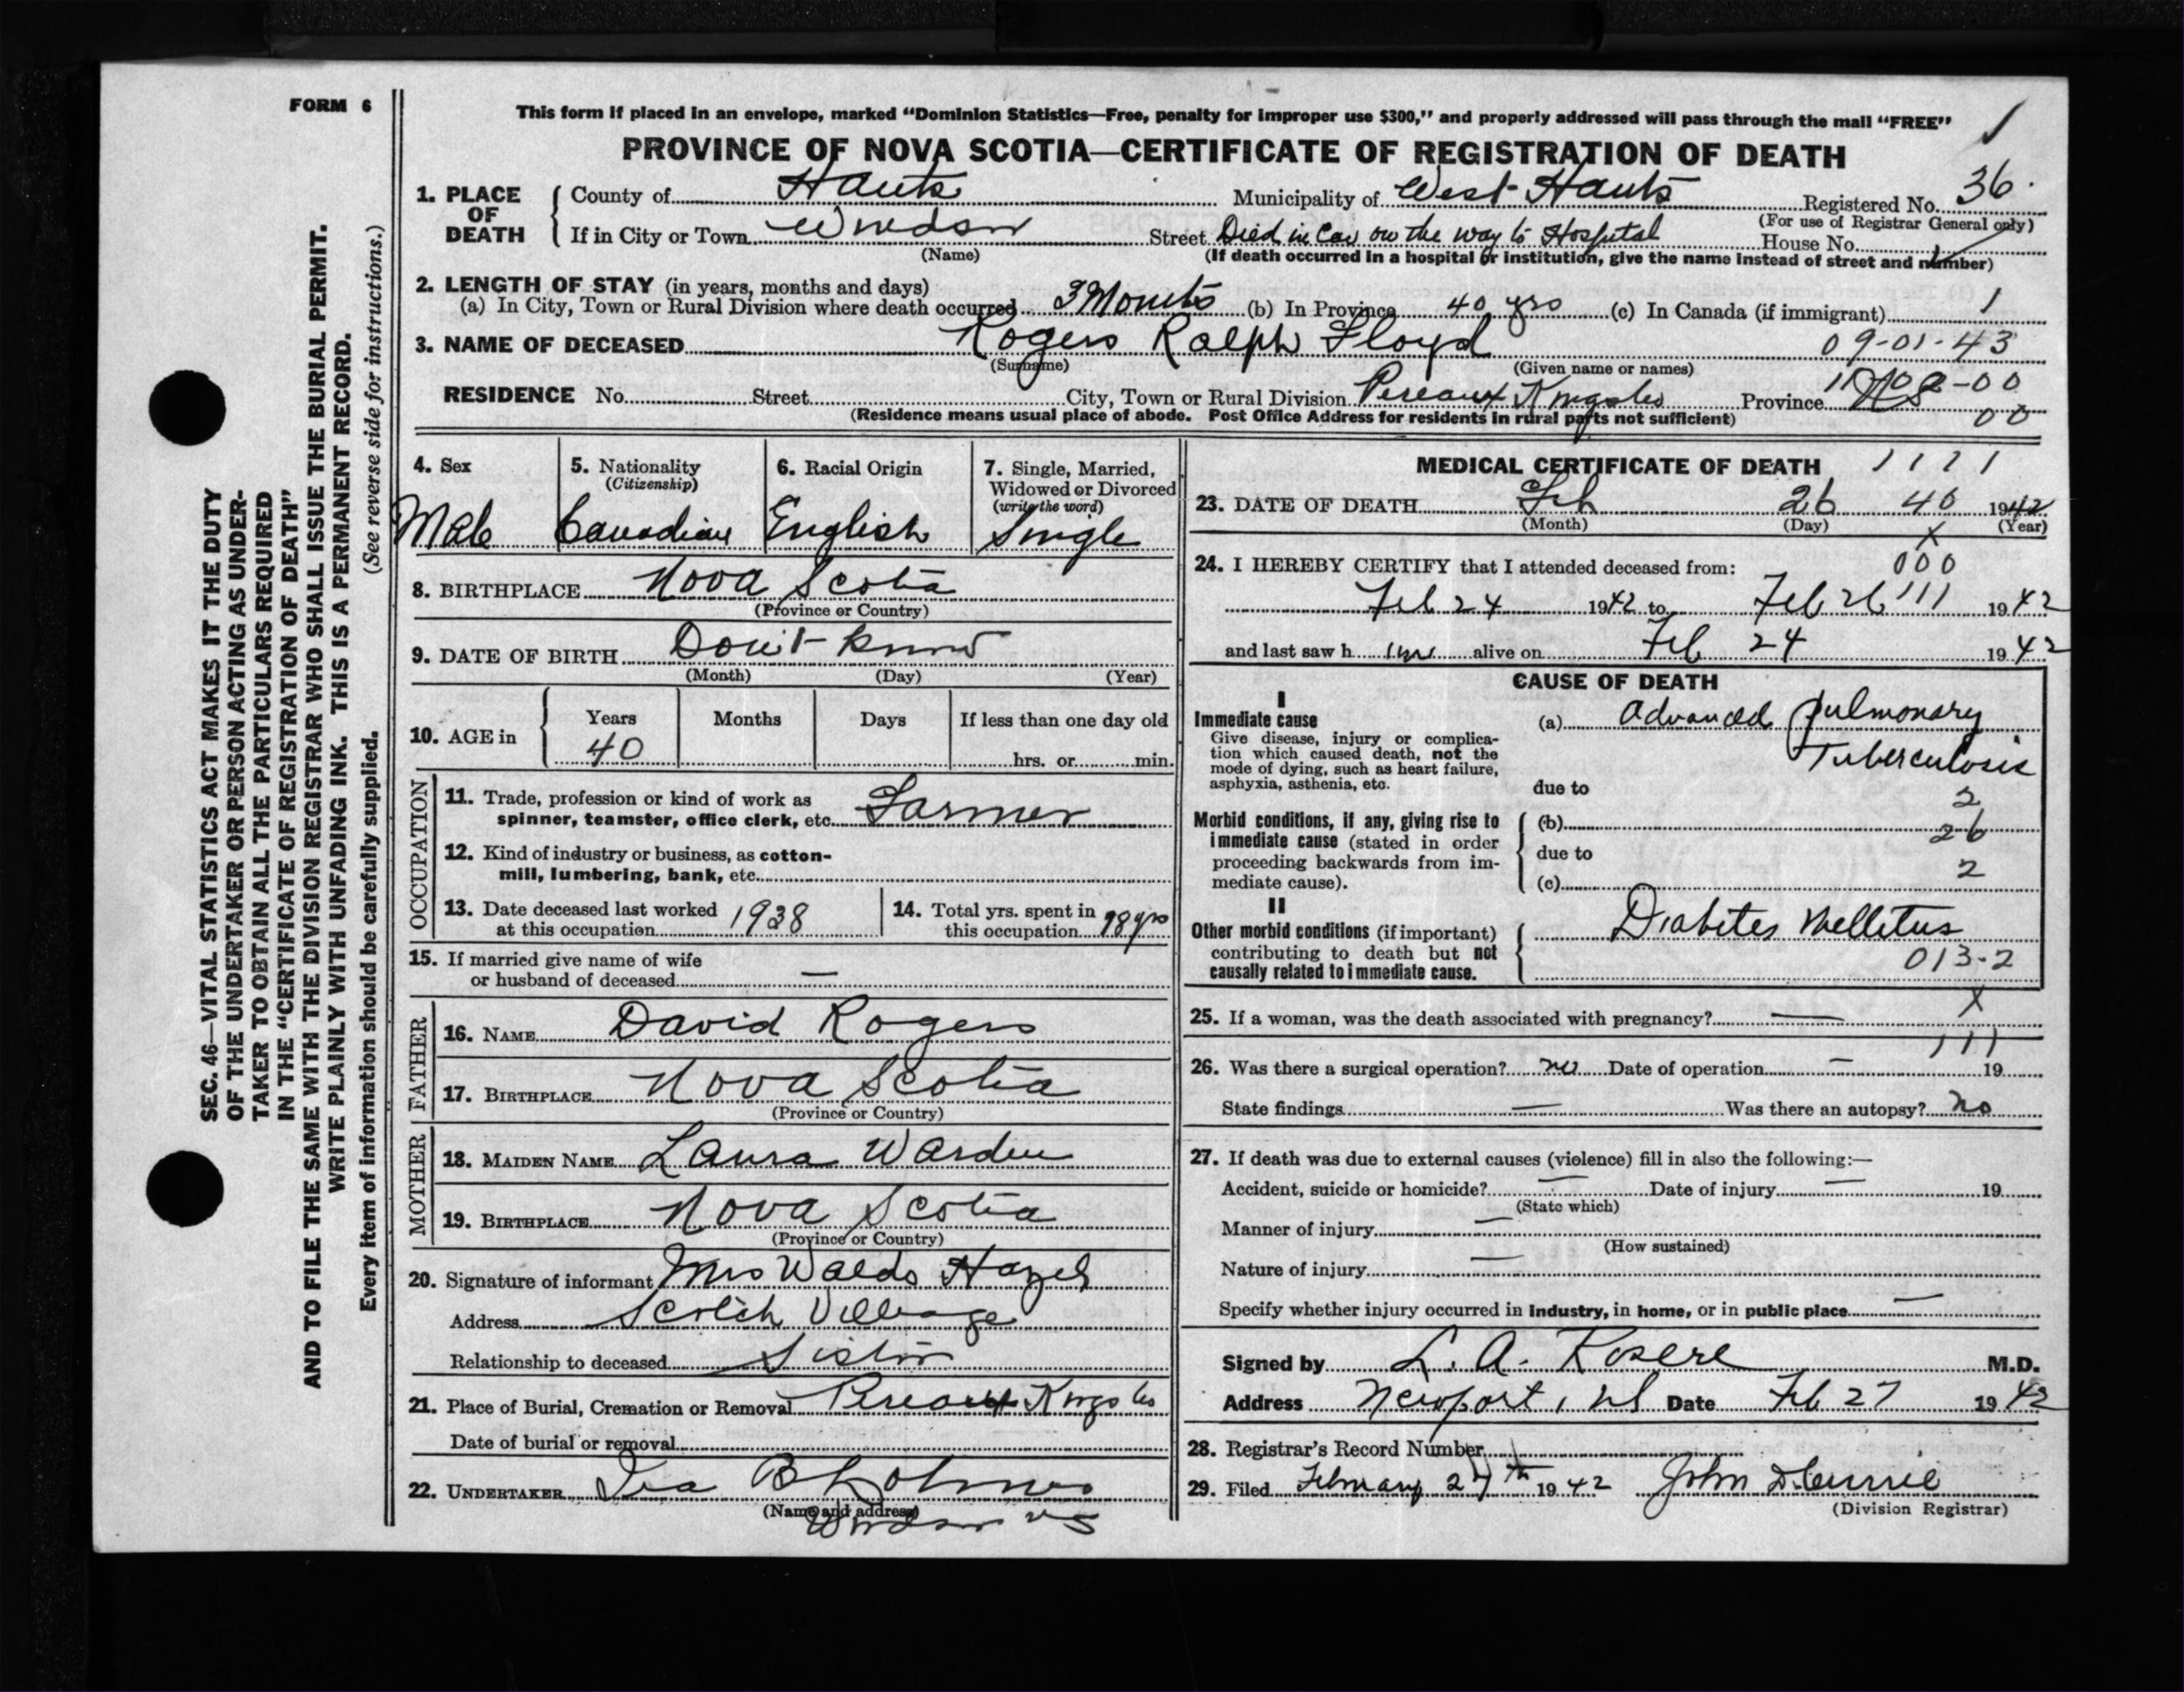 FORM 6
This form if placed in an envelope, marked "Dominion Statistics—Free, penalty for improper use $300," and properly addressed will pass through the mail "FREE"
PROVINCE OF NOVA SCOTIA—CERTIFICATE OF REGISTRATION OF DEATH
1. PLACE OF DEATH County of Hants Municipality of West Hants Registered No. 36.
(For use of Registrar General only)
If in City or Town Windsor Street Died in Car on the way to Hospital House No.
(Name) (If death occurred in a hospital or institution, give the name instead of street and number)
2. LENGTH OF STAY (in years, months and days)
(a) In City, Town or Rural Division where death occurred 3 Months (b) In Province 40 yrs (c) In Canada (if immigrant) 1
3. NAME OF DECEASED Rogers Ralph Floyd 09-01-43
(Surname) (Given name or names)
RESIDENCE No. Street City, Town or Rural Division Pereaux Kings Co Province NS
00
(Residence means usual place of abode. Post Office Address for residents in rural parts not sufficient)
4. Sex Male
5. Nationality (Citizenship) Canadian
6. Racial Origin English
7. Single, Married, Widowed or Divorced (write the word) Single
8. BIRTHPLACE Nova Scotia
(Province or Country)
9. DATE OF BIRTH Don't Know
(Month) (Day) (Year)
10. AGE in Years Months Days If less than one day old
40 hrs. or min.
OCCUPATION
11. Trade, profession or kind of work as
spinner, teamster, office clerk, etc. Farmer
12. Kind of industry or business, as cotton-
mill, lumbering, bank, etc.
13. Date deceased last worked
at this occupation 1938
14. Total yrs. spent in
this occupation yrs
15. If married give name of wife
or husband of deceased —
FATHER
16. NAME David Rogers
17. BIRTHPLACE Nova Scotia
(Province or Country)
MOTHER
18. MAIDEN NAME Laura Warden
19. BIRTHPLACE Nova Scotia
(Province or Country)
20. Signature of informant Mrs Waldo Hazel
Address Scotch Village
Relationship to deceased Sister
21. Place of Burial, Cremation or Removal Pereaux Kings Co
Date of burial or removal
22. UNDERTAKER Ira B
(Name and address)
Windsor NS
MEDICAL CERTIFICATE OF DEATH 1 1 1 1
23. DATE OF DEATH Feb 26 40 1942
(Month) (Day) (Year)
X
24. I HEREBY CERTIFY that I attended deceased from: 000
Feb 24 1942 to Feb 26 111 1942
and last saw h im alive on Feb 24 1942
CAUSE OF DEATH
I
Immediate cause
Give disease, injury or complica-
tion which caused death, not the
mode of dying, such as heart failure,
asphyxia, asthenia, etc.
(a) Advanced Pulmonary
Tuberculosis
due to 2
Morbid conditions, if any, giving rise to
immediate cause (stated in order
proceeding backwards from im-
mediate cause).
(b) 26
due to 2
(c)
II
Other morbid conditions (if important)
contributing to death but not
causally related to immediate cause.
Diabetes Mellitus
013-2
X
25. If a woman, was the death associated with pregnancy? —
111
26. Was there a surgical operation? no Date of operation — 19
State findings — Was there an autopsy? no
27. If death was due to external causes (violence) fill in also the following:—
Accident, suicide or homicide? — Date of injury — 19
(State which)
Manner of injury —
(How sustained)
Nature of injury —
Specify whether injury occurred in industry, in home, or in public place —
Signed by L. A. M.D.
Address Newport, NS Date Feb 27 1942
28. Registrar's Record Number
29. Filed February 27th 1942 John D Currie
(Division Registrar)
SEC. 46—VITAL STATISTICS ACT MAKES IT THE DUTY
OF THE UNDERTAKER OR PERSON ACTING AS UNDER-
TAKER TO OBTAIN ALL THE PARTICULARS REQUIRED
IN THE "CERTIFICATE OF REGISTRATION OF DEATH"
AND TO FILE THE SAME WITH THE DIVISION REGISTRAR WHO SHALL ISSUE THE BURIAL PERMIT.
WRITE PLAINLY WITH UNFADING INK. THIS IS A PERMANENT RECORD.
Every item of information should be carefully supplied. (See reverse side for instructions.)